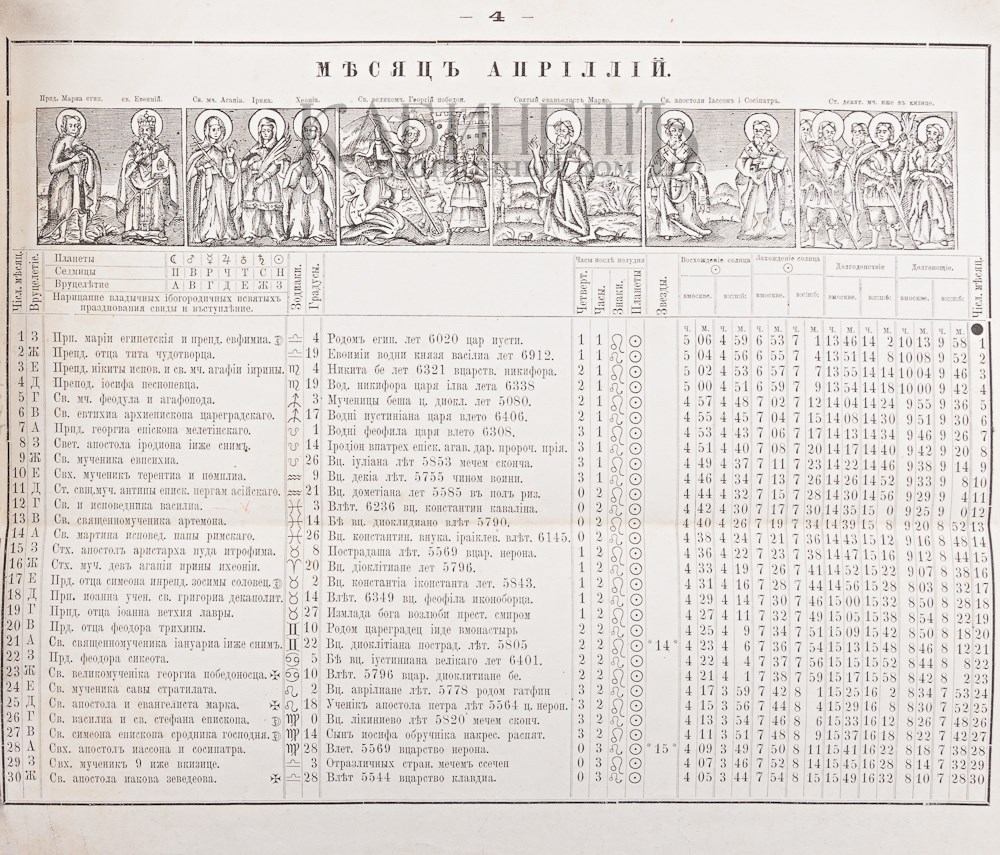 — 4 —
МѢСЯЦЪ АПРІЛЛІЙ.
Прд. Мариа егип. св. Евѳимій. Св. мч. Агапіа. Ірина. Хеоніа. Св. великом. Георгій победон. Святый еваньелистъ Марко. Св. апостоли Іассонъ і Сосіпатръ. Ст. девят. мч. иже въ кизице.
КАБИНЕТЪ
ДОМ
Чісл. мѣсяц.
Вруцелетіе.
Планеты ☾ ♂ ☿ ♃ ♀ ♄ ☉
Седмицы П В Р Ч Т С Н
Вруцелѣтіе А В Г Д Е Ж З
Нарицание владычных ібогородичных исвятых
празднования свиды и въступлѣние.
Зодиаки.
Градусы.
Часы послѣ полудня
Четверт.
Часы.
Знаки.
Планеты
Звезды.
Восхождение солнца ☉ Захождение солнца ☉ Долгоденствіе Долгонощіе.
вмоскве. Чісл. мѣсяц.
ч. м. ч. м. ч. м. ч. м. ч. м. ч. м. ч. м. ч. м.
1 З Прп. маріи египетскія и препд. евфимиа. ♎ 4 Родомъ егип. лет 6020 цар иусти. 1 1 ♌ ☉ 5 06 4 59 6 53 7 1 13 46 14 2 10 13 9 58 1
2 Ж Препд. отца тита чудотворца. ♎ 19 Евѳимии водни князя васіліа лет 6912. 1 1 ♌ ☉ 5 04 4 56 6 55 7 4 13 51 14 8 10 08 9 52 2
3 Е Препд. нікиты испов. и св. мч. агафіи ірины. ♏ 4 Никита бе лет 6321 вцарств. никифора. 2 1 ♌ ☉ 5 02 4 53 6 57 7 7 13 55 14 14 10 04 9 46 3
4 Д Препод. іосифа песнопевца. ♏ 19 Вод. никифора царя ілва лета 6338 2 1 ♌ ☉ 5 00 4 51 6 59 7 9 13 54 14 18 10 00 9 42 4
5 Г Св. мч. феодула и агафопода. ♐ 3 Мученицы беша ц. диокл. лет 5080. 2 1 ♌ ☉ 4 57 4 48 7 02 7 12 14 04 14 24 9 55 9 36 5
6 В Св. евтихиа архиепископа цареградскаго. ♐ 17 Водні иустиніана царя влето 6406. 2 1 ♌ ☉ 4 55 4 45 7 04 7 15 14 08 14 30 9 51 9 30 6
7 А Прпд. георгиа епіскопа мелетінскаго. ♑ 1 Водні феофила царя влето 6308. 3 1 ♌ ☉ 4 53 4 43 7 06 7 17 14 13 14 34 9 46 9 26 7
8 З Свет. апостола іродиона іиже снимъ. ♑ 14 Іродіон впатрех епіск. агав. дар. пророч. прія. 3 1 ♌ ☉ 4 51 4 40 7 08 7 20 14 17 14 40 9 42 9 20 8
9 Ж Св. мученика евпсихиа. ♑ 26 Вц. іуліана лѣт 5853 мечем скончa. 3 1 ♌ ☉ 4 49 4 37 7 11 7 23 14 22 14 46 9 38 9 14 9
10 Е Свх. мученик терентиа и помпилиа. ♒ 9 Вц. декіа лѣт. 5755 чином воини. 3 1 ♌ ☉ 4 46 4 34 7 13 7 26 14 26 14 52 9 33 9 8 10
11 Д Ст. свщ.муч. антипы епіск. пергам асійскаго. ♒ 21 Вц. дометіана лет 5585 въ полъ риз. 0 2 ♌ ☉ 4 44 4 32 7 15 7 28 14 30 14 56 9 29 9 4 11
12 Г Св. и исповедника василиа. ♓ 3 Влѣт. 6236 вц. константин каваліна. 0 2 ♌ ☉ 4 42 4 30 7 17 7 30 14 35 15 0 9 25 9 0 12
13 В Св. священномученика артемона. ♓ 14 Бѣ вц. диоклидиано влѣт 5790. 0 2 ♌ ☉ 4 40 4 26 7 19 7 34 14 39 15 8 9 20 8 52 13
14 А Св. мартина исповед. папы римскаго. ♓ 26 Вц. константин. внука. іраіклев. влѣт. 6145. 0 2 ♌ ☉ 4 38 4 24 7 21 7 36 14 43 15 12 9 16 8 48 14
15 З Стх. апостолъ аристарха пуда итрофима. ♉ 8 Пострадаша лѣт. 5569 вцар. нерона. 1 2 ♌ ☉ 4 36 4 22 7 23 7 38 14 47 15 16 9 12 8 44 15
16 Ж Стх. муч. девъ агапіи ірины ихеоніи. ♈ 20 Вц. діоклітіане лет 5796. 1 2 ♌ ☉ 4 33 4 19 7 26 7 41 14 52 15 22 9 07 8 38 16
17 Е Прд. отца симеона ипрепд. зосимы соловец. ♉ 2 Вц. константіа іконстанта лет. 5843. 1 2 ♌ ☉ 4 31 4 16 7 28 7 44 14 56 15 28 8 03 8 32 17
18 Д Прп. иоанна учен. св. григориа декаполит. ♉ 14 Влѣт. 6349 вц. феофіла иконоборца. 1 2 ♌ ☉ 4 29 4 14 7 30 7 46 15 00 15 32 8 50 8 28 18
19 Г Прпд. отца іоанна ветхия лавры. ♉ 27 Измлада бога возлюби прест. смиром 1 2 ♌ ☉ 4 27 4 11 7 32 7 49 15 05 15 38 8 54 8 22 19
20 В Прд. отца феодора трихины. ♊ 10 Родом цареградец інде вмонастырь 2 2 ♌ ☉ 4 25 4 9 7 34 7 51 15 09 15 42 8 50 8 18 20
21 А Св. священномученика іануариа іиже снимъ. ♊ 22 Вц. диоклітіана пострад. лѣт. 5805 2 2 ♌ ☉ *14* 4 23 4 6 7 36 7 54 15 13 15 48 8 46 8 12 21
22 З Прд. феодора сикеота. ♋ 5 Бѣ вц. іустиниана велікаго лет 6401. 2 2 ♌ ☉ 4 22 4 4 7 37 7 56 15 15 15 52 8 44 8 8 22
23 Ж Св. великомученіка георгиа победоносца. ✠ ♋ 10 Влѣт. 5796 вцар. диоклитиане бе. 2 2 ♌ ☉ 4 21 4 1 7 38 7 59 15 17 15 58 8 42 8 2 23
24 Е Св. мученика савы стратилата. ♌ 2 Вц. авриліане лѣт. 5778 родом гатфин 3 2 ♌ ☉ 4 17 3 59 7 42 8 1 15 25 16 2 8 34 7 53 24
25 Д Св. апостола и евангелиста марка. ✠ ♌ 18 Ученікъ апостола петра лѣт 5564 ц. нерон. 3 2 ♌ ☉ 4 15 3 56 7 44 8 4 15 29 16 8 8 30 7 52 25
26 Г Св. василиа и св. стефана епископа. ♍ 0 Вц. лікініево лѣт 5820 мечем сконч. 3 2 ♌ ☉ 4 13 3 54 7 46 8 6 15 33 16 12 8 26 7 48 26
27 В Св. симеона епископа сродника господня. ♍ 14 Сынъ иосифа обручніка накрес. распят. 3 2 ♌ ☉ 4 11 3 51 7 48 8 9 15 37 16 18 8 22 7 42 27
28 А Свх. апостолъ иассона и сосипатра. ♍ 28 Влет. 5569 вцарство нерона. 0 3 ♌ ☉ *15* 4 09 3 49 7 50 8 11 15 41 16 22 8 18 7 38 28
29 З Свх. мученик 9 иже вкизице. ♎ 3 Отразличных стран. мечем ссечен 0 3 ♌ ☉ 4 07 3 46 7 52 8 14 15 45 16 28 8 14 7 32 29
30 Ж Св. апостола иакова зеведеова. ✠ ♎ 28 Влѣт 5544 вцарство клавдиа. 0 3 ♌ ☉ 4 05 3 44 7 54 8 15 15 49 16 32 8 10 7 28 30